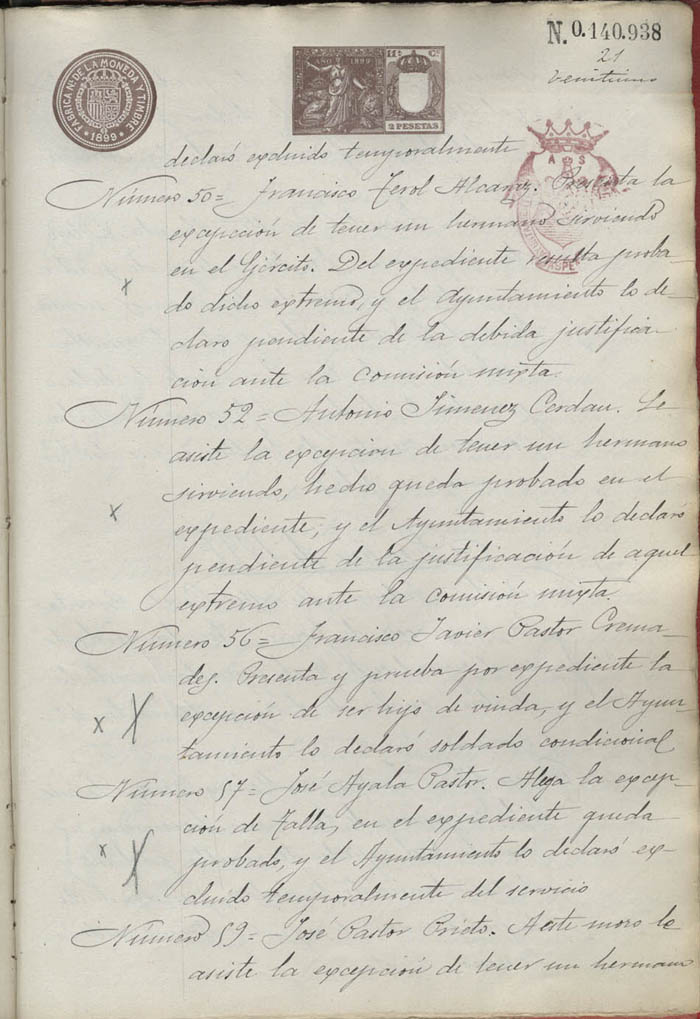 N. 0.140.938
21
Veintiuno
FABRICA Nal. DE LA MONEDA Y TIMBRE
* 1899 *
AÑO 1899
11ª C.
2 PESETAS
A S
ASPE
declaró excluido temporalmente
Número 50 = Francisco Terol Alcaraz. Presenta la
excepción de tener un hermano sirviendo
en el Ejército. Del expediente resulta proba-
do dicho extremo, y el Ayuntamiento lo de-
claro pendiente de la debida justifica-
ción ante la Comisión mixta.
Número 52 = Antonio Jimenez Cerdan. Le
asiste la excepcion de tener un hermano
sirviendo, hecho queda probado en el
expediente, y el Ayuntamiento lo declaró
pendiente de la justificación de aquel
extremo ante la comisión mixta.
Número 56 = Francisco Javier Pastor Crema-
des. Presenta y prueba por expediente la
excepción de ser hijo de viuda, y el Ayun-
tamiento lo declaró soldado condicional
Número 57 = José Ayala Pastor. Alega la excep-
ción de Talla, en el expediente queda
probado, y el Ayuntamiento lo declaró ex-
cluido temporalmente del servicio
Número 59 = José Pastor Prieto. A este mozo le
asiste la excepción de tener un hermano